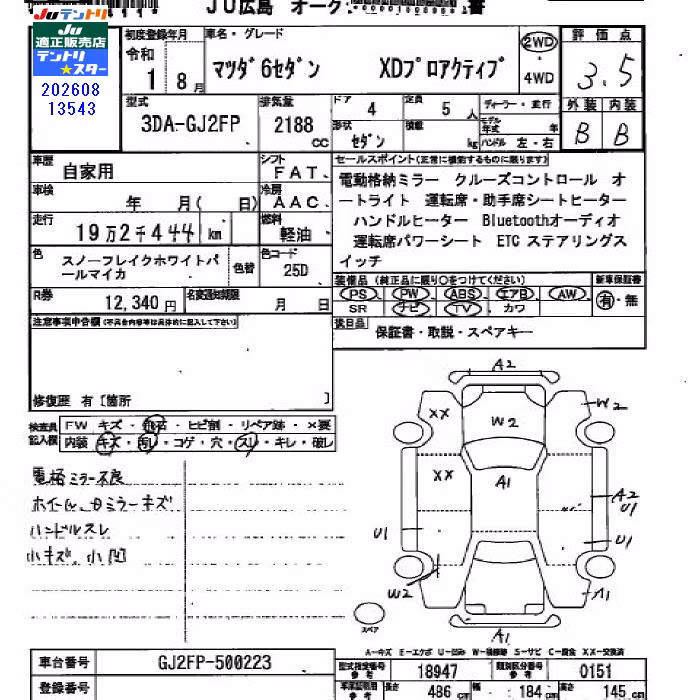 JU広島 オーク
JUテントリ
JU
適正販売店
テントリ
★スター
202608
13543
初度登録年月
令和
1 8月
車名・グレード
マツダ6セダン XDプロアクティブ
2WD
・
4WD
評価点
3.5
外装 内装
B B
型式
3DA-GJ2FP
排気量
2188 cc
ドア 4
定員 5人
形状 セダン
積載 kg
ディーラー・並行
モデル年式 年
ハンドル 左・右
車歴 自家用
シフト FAT
車検 年 月( 日)
冷房 AAC
走行 19万2千444 km
燃料 軽油
色 スノーフレイクホワイトパールマイカ
色替
色コード 25D
R券 12,340円
名変通知期限 月 日
セールスポイント(正常に機能するものに限ります)
電動格納ミラー クルーズコントロール オ
ートライト 運転席・助手席シートヒーター
ハンドルヒーター Bluetoothオーディオ
運転席パワーシート ETC ステアリングス
イッチ
装備品(純正品に限り○をつけてください)
新車保証書
PS・PW・ABS・エアB・AW・
SR ナビ・TV・カワ
有・無
後日品 保証書・取説・スペアキー
注意事項申告欄(不具合内容等は具体的に記入して下さい)
修復歴 有〔箇所 〕
検査員記入欄
FW キズ・飛石・ヒビ割・リペア跡・×要
内装 キズ・汚レ・コゲ・穴・スレ・キレ・破レ
電格ミラー不良
ホイール、ミラーキズ
ハンドルスレ
小キズ、小凹
A2
XX W2 W2
XX A1 A2
U1
U1 U1
W2 A1
A1
スペア
A-キズ E-エクボ U-凹み W-補修跡 S-サビ C-腐食 XX-交換済
車台番号 GJ2FP-500223
登録番号
型式指定番号 参考 18947
類別区分番号 参考 0151
長さ 486cm
幅 184cm
高さ 145cm